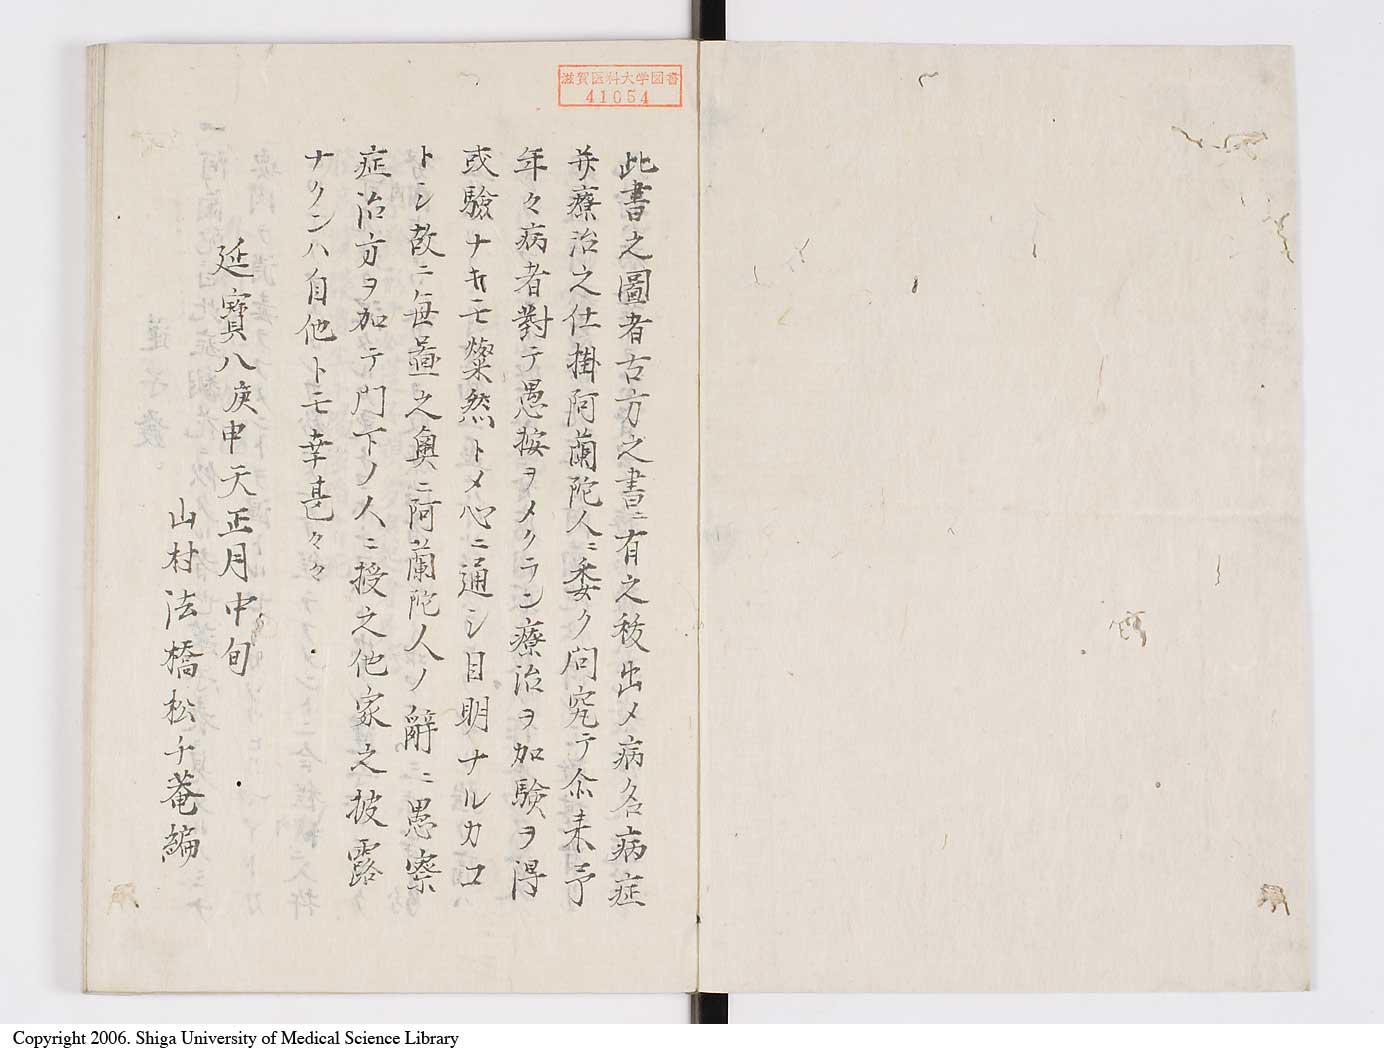 滋賀医科大学図書
41054
此書之圖者古方之書ニ有之移出メ病名病症
并療治之仕掛阿蘭陀人ニ委ク問究テ余来予
年々病者對テ愚按ヲメクラシ療治ヲ加験ヲ得
或驗ナキモ燦然トメ心ニ通シ目明ナルカコ
トシ故ニ毎 之奥ニ阿蘭陀人ノ辭ニ愚察
症治方ヲ加テ門下ノ人ニ授之他家之披露
ナクンハ自他トモ幸甚々々
延寶八庚申天正月中旬
山村法橋松千菴編
Copyright 2006. Shiga University of Medical Science Library